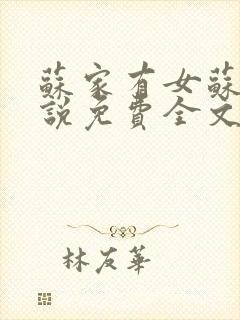 蘇家有女蘇
說免費全文
林友華